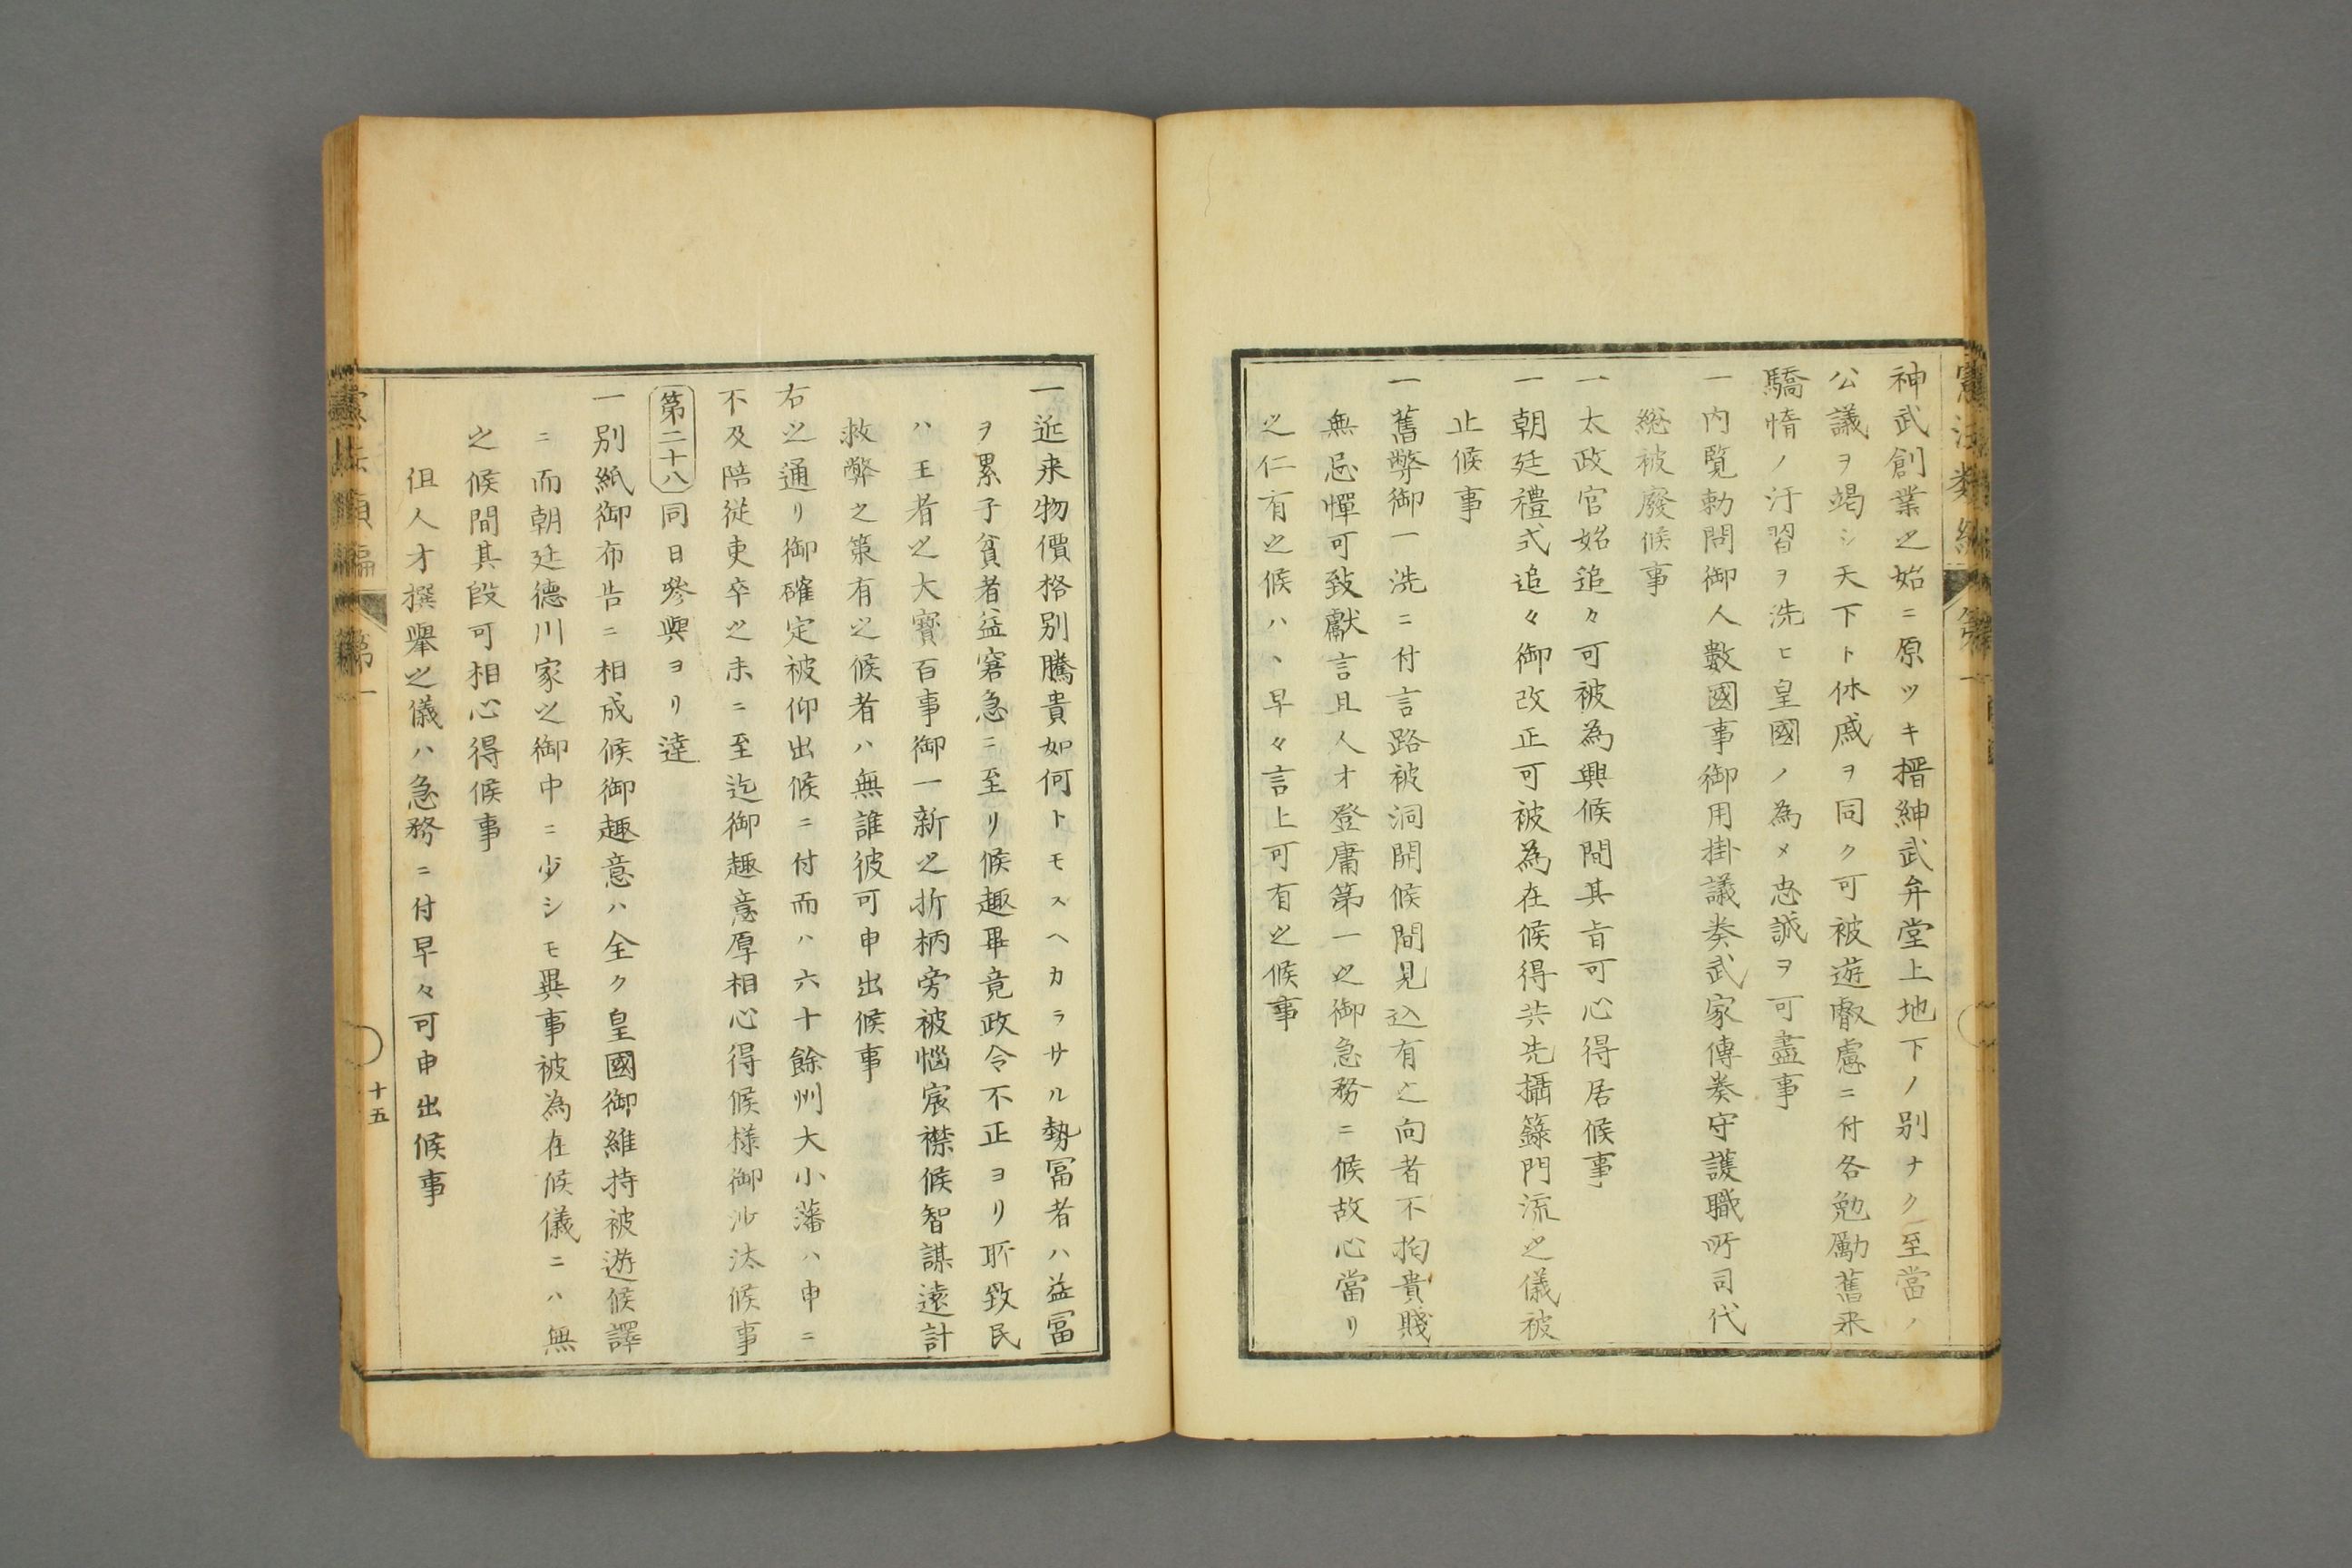 神武創業之始ニ原ツキ搢紳武弁堂上地下ノ別ナク至當ノ
公議ヲ竭シ天下ト休戚ヲ同ク可被遊叡慮ニ付各勉勵舊来
驕惰ノ汙習ヲ洗ヒ皇國ノ為メ忠誠ヲ可盡事
一内覽勅問御人數國事御用掛議奏武家傳奏守護職所司代
総被廢候事
一太政官始追々可被為興候間其旨可心得居候事
一朝廷禮式追々御改正可被為在候得共先攝籙門流之儀被
止候事
一舊弊御一洗ニ付言路被洞開候間見込有之向者不拘貴賤
無忌憚可致獻言且人才登庸第一之御急務ニ候故心當リ
之仁有之候ハヽ早々言上可有之候事
一近来物價格別騰貴如何トモスヘカラサル勢冨者ハ益冨
ヲ累子貧者益窘急ニ至リ候趣畢竟政令不正ヨリ所致民
ハ王者之大寶百事御一新之折柄旁被惱宸襟候智謀遠計
救弊之策有之候者ハ無誰彼可申出候事
右之通リ御確定被仰出候ニ付而ハ六十餘州大小藩ハ申ニ
不及陪従吏卒之末ニ至迄御趣意厚相心得候様御沙汰候事
第二十八同日參與ヨリ達
一別紙御布告ニ相成候御趣意ハ全ク皇國御維持被遊候譯
ニ而朝廷德川家之御中ニ少シモ異事被為在候儀ニハ無
之候間其段可相心得候事
但人才撰舉之儀ハ急務ニ付早々可申出候事
憲法類編 第一
十五